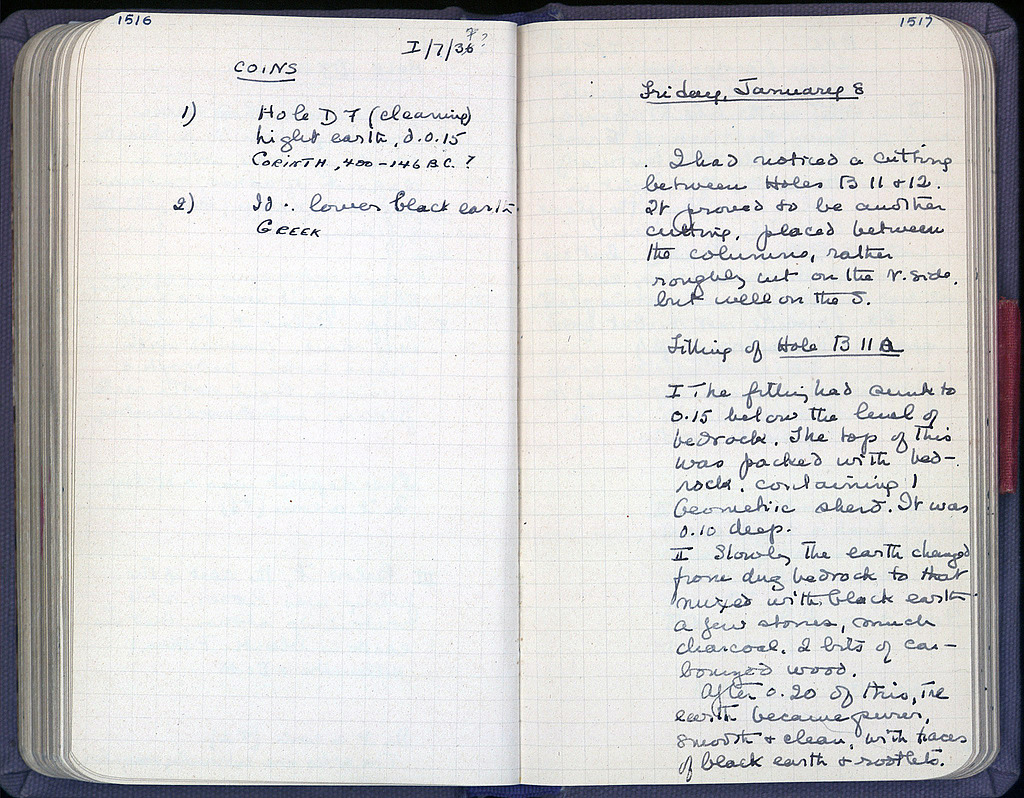 1516
I/7/36 7?
COINS
1) Hole D 7 (cleaning)
Light earth, d.0.15
CORINTH, 400-146 B.C. ?
2) Id. lower black earth.
GREEK
1517
Friday, January 8
I had noticed a cutting
between Holes B 11 & 12.
It proved to be another
cutting, placed between
the columns, rather
roughly cut on the N. side,
but well on the S.
Filling of Hole B 11 a
I The filling had sunk to
0.15 below the level of
bedrock. The top of this
was packed with bed-
rock, containing 1
Geometric sherd. It was
0.10 deep.
II Slowly the earth changed
from dug bedrock to that
mixed with black earth
a few stones, much
charcoal. 2 bits of car-
bonized wood.
After 0.20 of this, the
earth became purer,
smooth & clean, with traces
of black earth & rootlets.